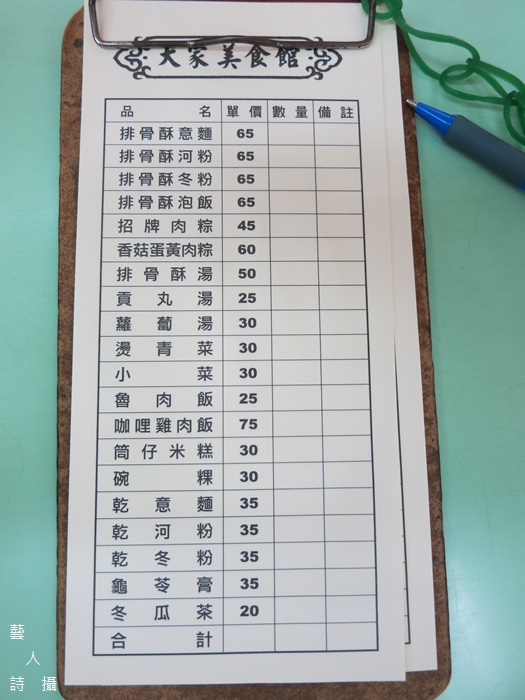 大家美食館
品名 單價 數量 備註
排骨酥意麵 65
排骨酥河粉 65
排骨酥冬粉 65
排骨酥泡飯 65
招牌肉粽 45
香菇蛋黃肉粽 60
排骨酥湯 50
貢丸湯 25
蘿蔔湯 30
燙青菜 30
小菜 30
魯肉飯 25
咖哩雞肉飯 75
筒仔米糕 30
碗粿 30
乾意麵 35
乾河粉 35
乾冬粉 35
龜苓膏 35
冬瓜茶 20
合計
藝人詩攝